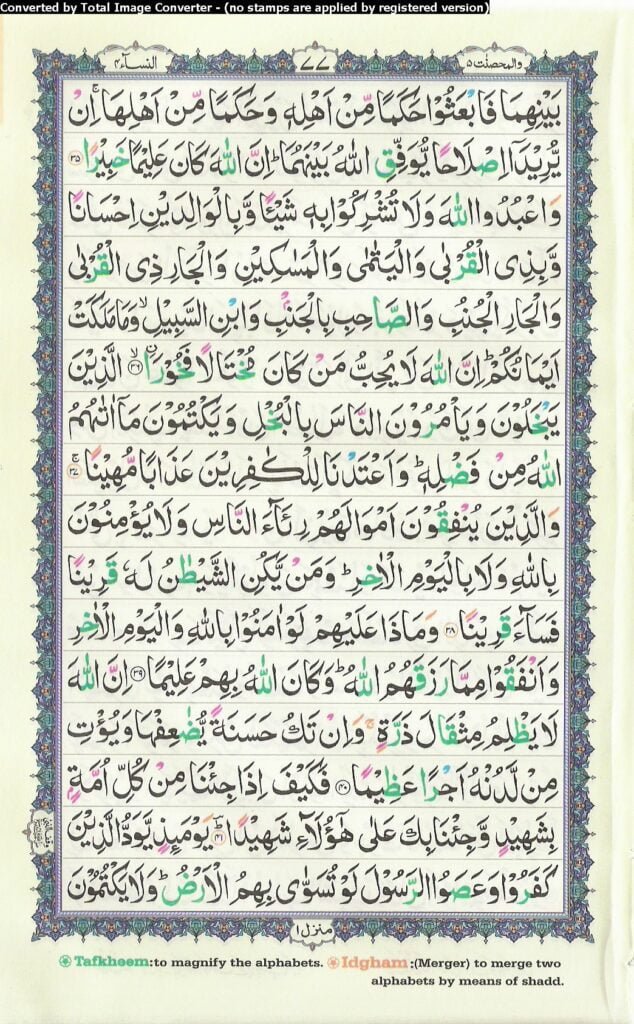 Converted by Total Image Converter - (no stamps are applied by registered version)
والمحصنت ۵ ۷۷ النسآء ۴
بَيْنِهِمَا فَابْعَثُوْا حَكَمًا مِّنْ اَهْلِهٖ وَحَكَمًا مِّنْ اَهْلِهَا ۚ اِنْ
يُّرِيْدَاۤ اِصْلَاحًا يُّوَفِّقِ اللّٰهُ بَيْنَهُمَا ؕ اِنَّ اللّٰهَ كَانَ عَلِيْمًا خَبِيْرًا ۳۵
وَاعْبُدُوا اللّٰهَ وَلَا تُشْرِكُوْا بِهٖ شَيْـًٔا وَّبِالْوَالِدَيْنِ اِحْسَانًا
وَّبِذِى الْقُرْبٰى وَالْيَتٰمٰى وَالْمَسٰكِيْنِ وَالْجَارِ ذِى الْقُرْبٰى
وَالْجَارِ الْجُنُبِ وَالصَّاحِبِ بِالْجَنْۢبِ وَابْنِ السَّبِيْلِ ۙ وَمَا مَلَكَتْ
اَيْمَانُكُمْ ؕ اِنَّ اللّٰهَ لَا يُحِبُّ مَنْ كَانَ مُخْتَالًا فَخُوْرًا ۙ ۳۶ الَّذِيْنَ
يَبْخَلُوْنَ وَيَاْمُرُوْنَ النَّاسَ بِالْبُخْلِ وَيَكْتُمُوْنَ مَاۤ اٰتٰٮهُمُ
اللّٰهُ مِنْ فَضْلِهٖ ؕ وَاَعْتَدْنَا لِلْكٰفِرِيْنَ عَذَابًا مُّهِيْنًا ۚ ۳۷
وَالَّذِيْنَ يُنْفِقُوْنَ اَمْوَالَهُمْ رِئَآءَ النَّاسِ وَلَا يُؤْمِنُوْنَ
بِاللّٰهِ وَلَا بِالْيَوْمِ الْاٰخِرِ ؕ وَمَنْ يَّكُنِ الشَّيْطٰنُ لَهٗ قَرِيْنًا
فَسَآءَ قَرِيْنًا ۳۸ وَمَاذَا عَلَيْهِمْ لَوْ اٰمَنُوْا بِاللّٰهِ وَالْيَوْمِ الْاٰخِرِ
وَاَنْفَقُوْا مِمَّا رَزَقَهُمُ اللّٰهُ ؕ وَكَانَ اللّٰهُ بِهِمْ عَلِيْمًا ۳۹ اِنَّ اللّٰهَ
لَا يَظْلِمُ مِثْقَالَ ذَرَّةٍ ۚ وَاِنْ تَكُ حَسَنَةً يُّضٰعِفْهَا وَيُؤْتِ
مِنْ لَّدُنْهُ اَجْرًا عَظِيْمًا ۴۰ فَكَيْفَ اِذَا جِئْنَا مِنْ كُلِّ اُمَّةٍۭ
بِشَهِيْدٍ وَّجِئْنَا بِكَ عَلٰى هٰٓؤُلَآءِ شَهِيْدًا ؕ ۴۱ يَوْمَئِذٍ يَّوَدُّ الَّذِيْنَ
كَفَرُوْا وَعَصَوُا الرَّسُوْلَ لَوْ تُسَوّٰى بِهِمُ الْاَرْضُ ؕ وَلَا يَكْتُمُوْنَ
منزل ۱
Tafkheem:to magnify the alphabets. Idgham :(Merger) to merge two
alphabets by means of shadd.